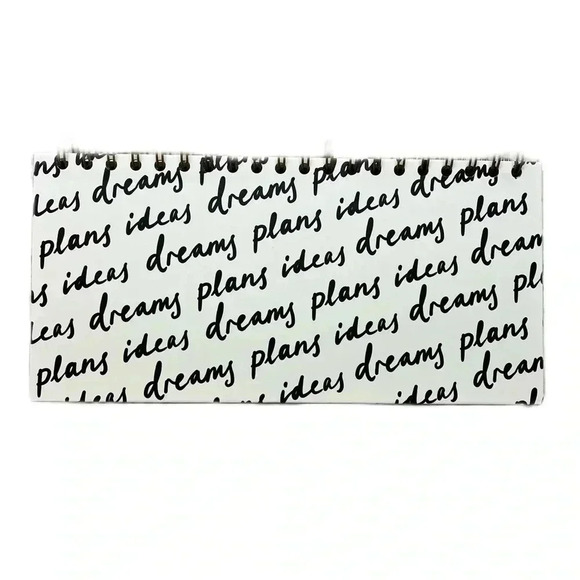 ns ideas
leas dreams plans
plans ideas dreams plans
s ideas dreams plans ideas dreams
leas dreams plans ideas dreams plans
plans ideas dreams plans ideas dream
ideas dreams plans ideas dreams pl
ideas dreams plans
ideas dream
pl